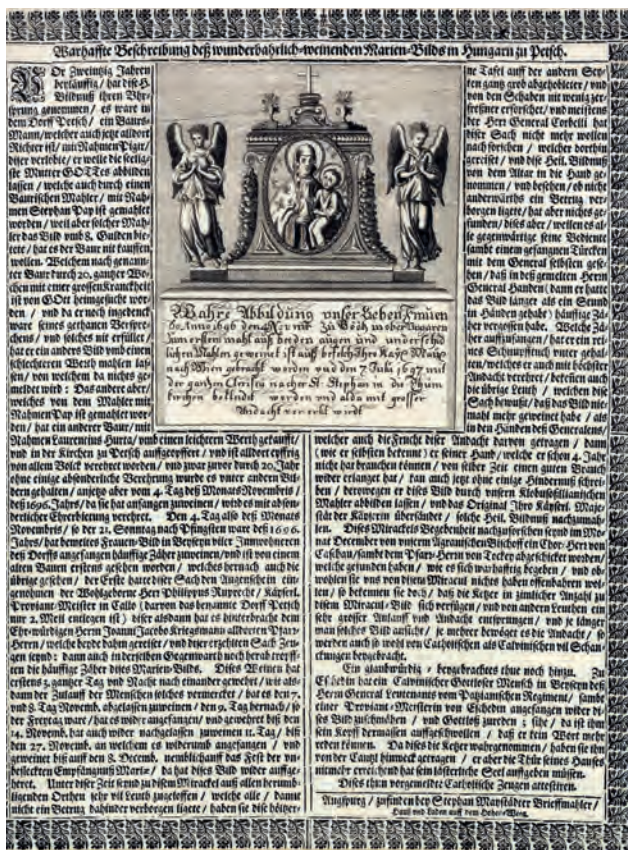 Warhaffte Beschreibung deß wunderbahrlich-weinenden Marien-Bilds in Hungarn zu Petsch.
VOr Zweintzig Jahren
beyläuffig / hat dise H.
Bildnuß ihren Vhr-
sprung genommen / es ware in
dem Dorff Petsch / ein Baurs-
Mann / welcher auch jetzt alldort
Richter ist / mit Nahmen Pigir /
diser verlobte / er welle die seelig-
ste Mutter GOTTes abbilden
lassen / welche auch durch einen
Baurischen Mahler / mit Nah-
men Stephan Pap ist gemahlet
worden / weil aber solcher Mah-
ler das Bild vmb 8. Gulden bie-
tete / hat es der Baur nit kauffen
wollen. Welchem nach genann-
ter Baur durch 20. gantzer Wo-
chen mit einer grossen Kranckheit
ist von GOtt heimgesucht wor-
den / und da er noch ingedenck
ware seines gethanen Verspre-
chens / und solches nit erfüllet /
hat er ein anders Bild vmb einen
schlechteren Werth mahlen las-
sen / von welchem da nichts ge-
meldet wird: Das andere aber /
welches von dem Mahler mit
Nahmen Pap ist gemahlet wor-
den / hat ein anderer Baur / mit
Nahmen Laurentius Hurta / vmb einen leichtern Werth gekaufft /
vnd in der Kirchen zu Petsch auffgeopffert / vnd ist alldort eyffrig
von allem Volck verehret worden / vnd zwar zuvor durch 20. Jahr
ohne einige absonderliche Verehrung wurde es vnter andern Bil-
dern gehalten / anjetzo aber vom 4. Tag deß Monats Novembris /
deß 1696. Jahrs / da sie hat anfangen zuweinen / wird es mit abson-
derlicher Ehrerbietung verehret. Den 4. Tag also deß Monats
Novembris / so der 21. Sonntag nach Pfingsten ware deß 1696.
Jahrs / hat dieses Frauen-Bild in Beyseyn viler Innwohneren
deß Dorffs angefangen häuffige Zäher zuweinen / und ist von einem
alten Bauren erstens gesehen worden / welches hernach auch die
übrige gesehen / der Erste hatte diser Sach den Augenschein ein-
genohmen der Wohlgeborne Herr Philippus Ruprecht / Käyserl.
Proviant-Meister in Callo (darvon das benannte Dorff Petsch
nur 2. Meil entlegen ist) diser alsdann hat es hinterbracht dem
Ehrwürdigen Herrn Joanni Jacobo Kriegsmann alldorten Pfar-
Herrn / welche beyde dahin gereiset / und diser erzehlten Sach Zeu-
gen seynd: dann auch in derselben Gegenwart noch herab treyff-
ten die häuffige Zäher dises Marien-Bilds. Dises Weinen hat
erstens 3. gantzer Tag vnd Nacht nach einander gewehret / wie als-
dann der Zulauff der Menschen solches vermercket / hat es den 7.
vnd 8. Tag Novemb. abgelassen zuweinen / den 9. Tag hernach / so
der Freytag ware / hat es wider angefangen / und gewehret biß den
14. Novemb. hat auch wider nachgelassen zuweinen 11. Tag / biß
den 27. Novemb. an welchem es widerumb angefangen / vnd
geweinet biß auff den 8. Decemb. nemblich auff das Fest der vn-
befleckten Empfängnuß Mariæ / da hat dises Bild wider auffge-
höret. Unter diser Zeit seynd zu disem Mirackel auß allen herumb-
ligenden Orthen sehr vil Leuth zugeloffen / welche alle / damit
nicht ein Betrug dahinder verborgen ligete / haben sie dise höltzer-
Wahre Abbildung unser Lieben Frauen
so Anno 1696 den 4 Nov: zu in ober Ungaren
Zum ersten mahl auß beiden augen und an underschid
lichen Mahlen geweinet ist auß befelch Ihro Kays: Mays:
nach Wien gebracht worden und den 7 Julij 1697 mit
der gantzen Clerisey nacher St: Stephan in die Thum
kirchen beklaidt worden und alda mit grosser
Andacht verehrt wird
ne Tafel auff der andern Sey-
ten gantz grob abgehobleter / vnd
von den Schaben nit wenig zer-
fressner erforschet / vnd meistens
der Herr General Corbelli hat
diser Sach nicht mehr wollen
nachforschen / welcher dorthin
gereiset / vnd dise Heil. Bildnuß
von dem Altar in die Hand ge-
nommen / vnd besehen / ob nicht
anderwärths ein Betrug ver-
borgen ligete / hat aber nichts ge-
funden / dises aber / weilen es al-
le gegenwärtige seine Bediente
sambt einem gefangnen Türcken
mit dem General selbsten gese-
hen / daß in deß gemelten Herrn
General Handen (dann er hatte
das Bild länger als ein Stund
in Händen gehabt) häuffige Zä-
her vergossen habe. Welche Zä-
her auffzufangen / hat er ein rei-
nes Schnupfftuch vnter gehal-
ten / welches er auch mit höchster
Andacht verehret / bekennen auch
die übrige Leuth / welchen dise
Sach bewust / daß das Bild nie-
mahl mehr geweinet habe / als
in den Händen deß Generalens /
welcher auch die Frucht diser Andacht darvon getragen / dann
(wie er selbsten bekennt) er seiner Hand / welche er schon 4. Jahr
nicht hat brauchen können / von selber Zeit einen guten Brauch
wider erlanget hat / kan auch jetzt ohne einige Hindernuß schrei-
ben / derowegen er dises Bild durch vnsern Klebusollianischen
Mahler abbilden lassen / vnd das Original Ihro Käyserl. Maje-
stät der Käyserin übersändet / solche Heil. Bildnuß nachzumah-
len. Dises Miracklels Begebenheit nachzuforschen seynd im Mo-
nat December von vnserm Agranischen Bischoff ein Chor-Herr von
Caschau / sambt dem Pfarr-Herrn von Tockey abgeschicket worden /
welche gefunden haben / wie es sich warhafftig begeben / vnd ob-
wohlen sie vns von disem Miracul nichts haben offenbahren wol-
len / so bekennen sie doch / daß die Ketzer in zimlicher Anzahl zu
disem Miracul-Bild sich verfügen / vnd von andern Leuthen ein
sehr grosser Anlauff vnd Andacht entsprungen / vnd je länger
man solches Bild ansicht / je mehrer beweget es die Andacht / so
werden auch so wohl von Catholischen als Calvinischen vil Schan-
ckungen beygebracht.
Ein glaubwürdig / beygebrachtes thue noch hinzu. Zu
Escheden hat ein Calvinischer Gottloser Mensch in Beyseyn deß
Herrn General Leutenants vom Patzianischen Regiment / sambt
einer Proviant-Meisterin von Escheden angefangen wider di-
ses Bild zuschmähen / vnd Gottloß zureden; sihe / da ist ihm
sein Kopff dermassen auffgeschwollen / daß er kein Wort mehr
reden können. Da dises die Ketzer wahrgenommen / haben sie ihn
von der Cantzl hinweck getragen / er aber die Thür seines Hauses
nit mehr erreichend hat sein lästerliche Seel auffgeben müssen.
Dises thun vorgemeldte Catholische Zeugen attestiren.
Augspurg / zufinden bey Stephan Maystädter Brieffmahler /
Hauß und Laden auff dem Hohen-Weeg.